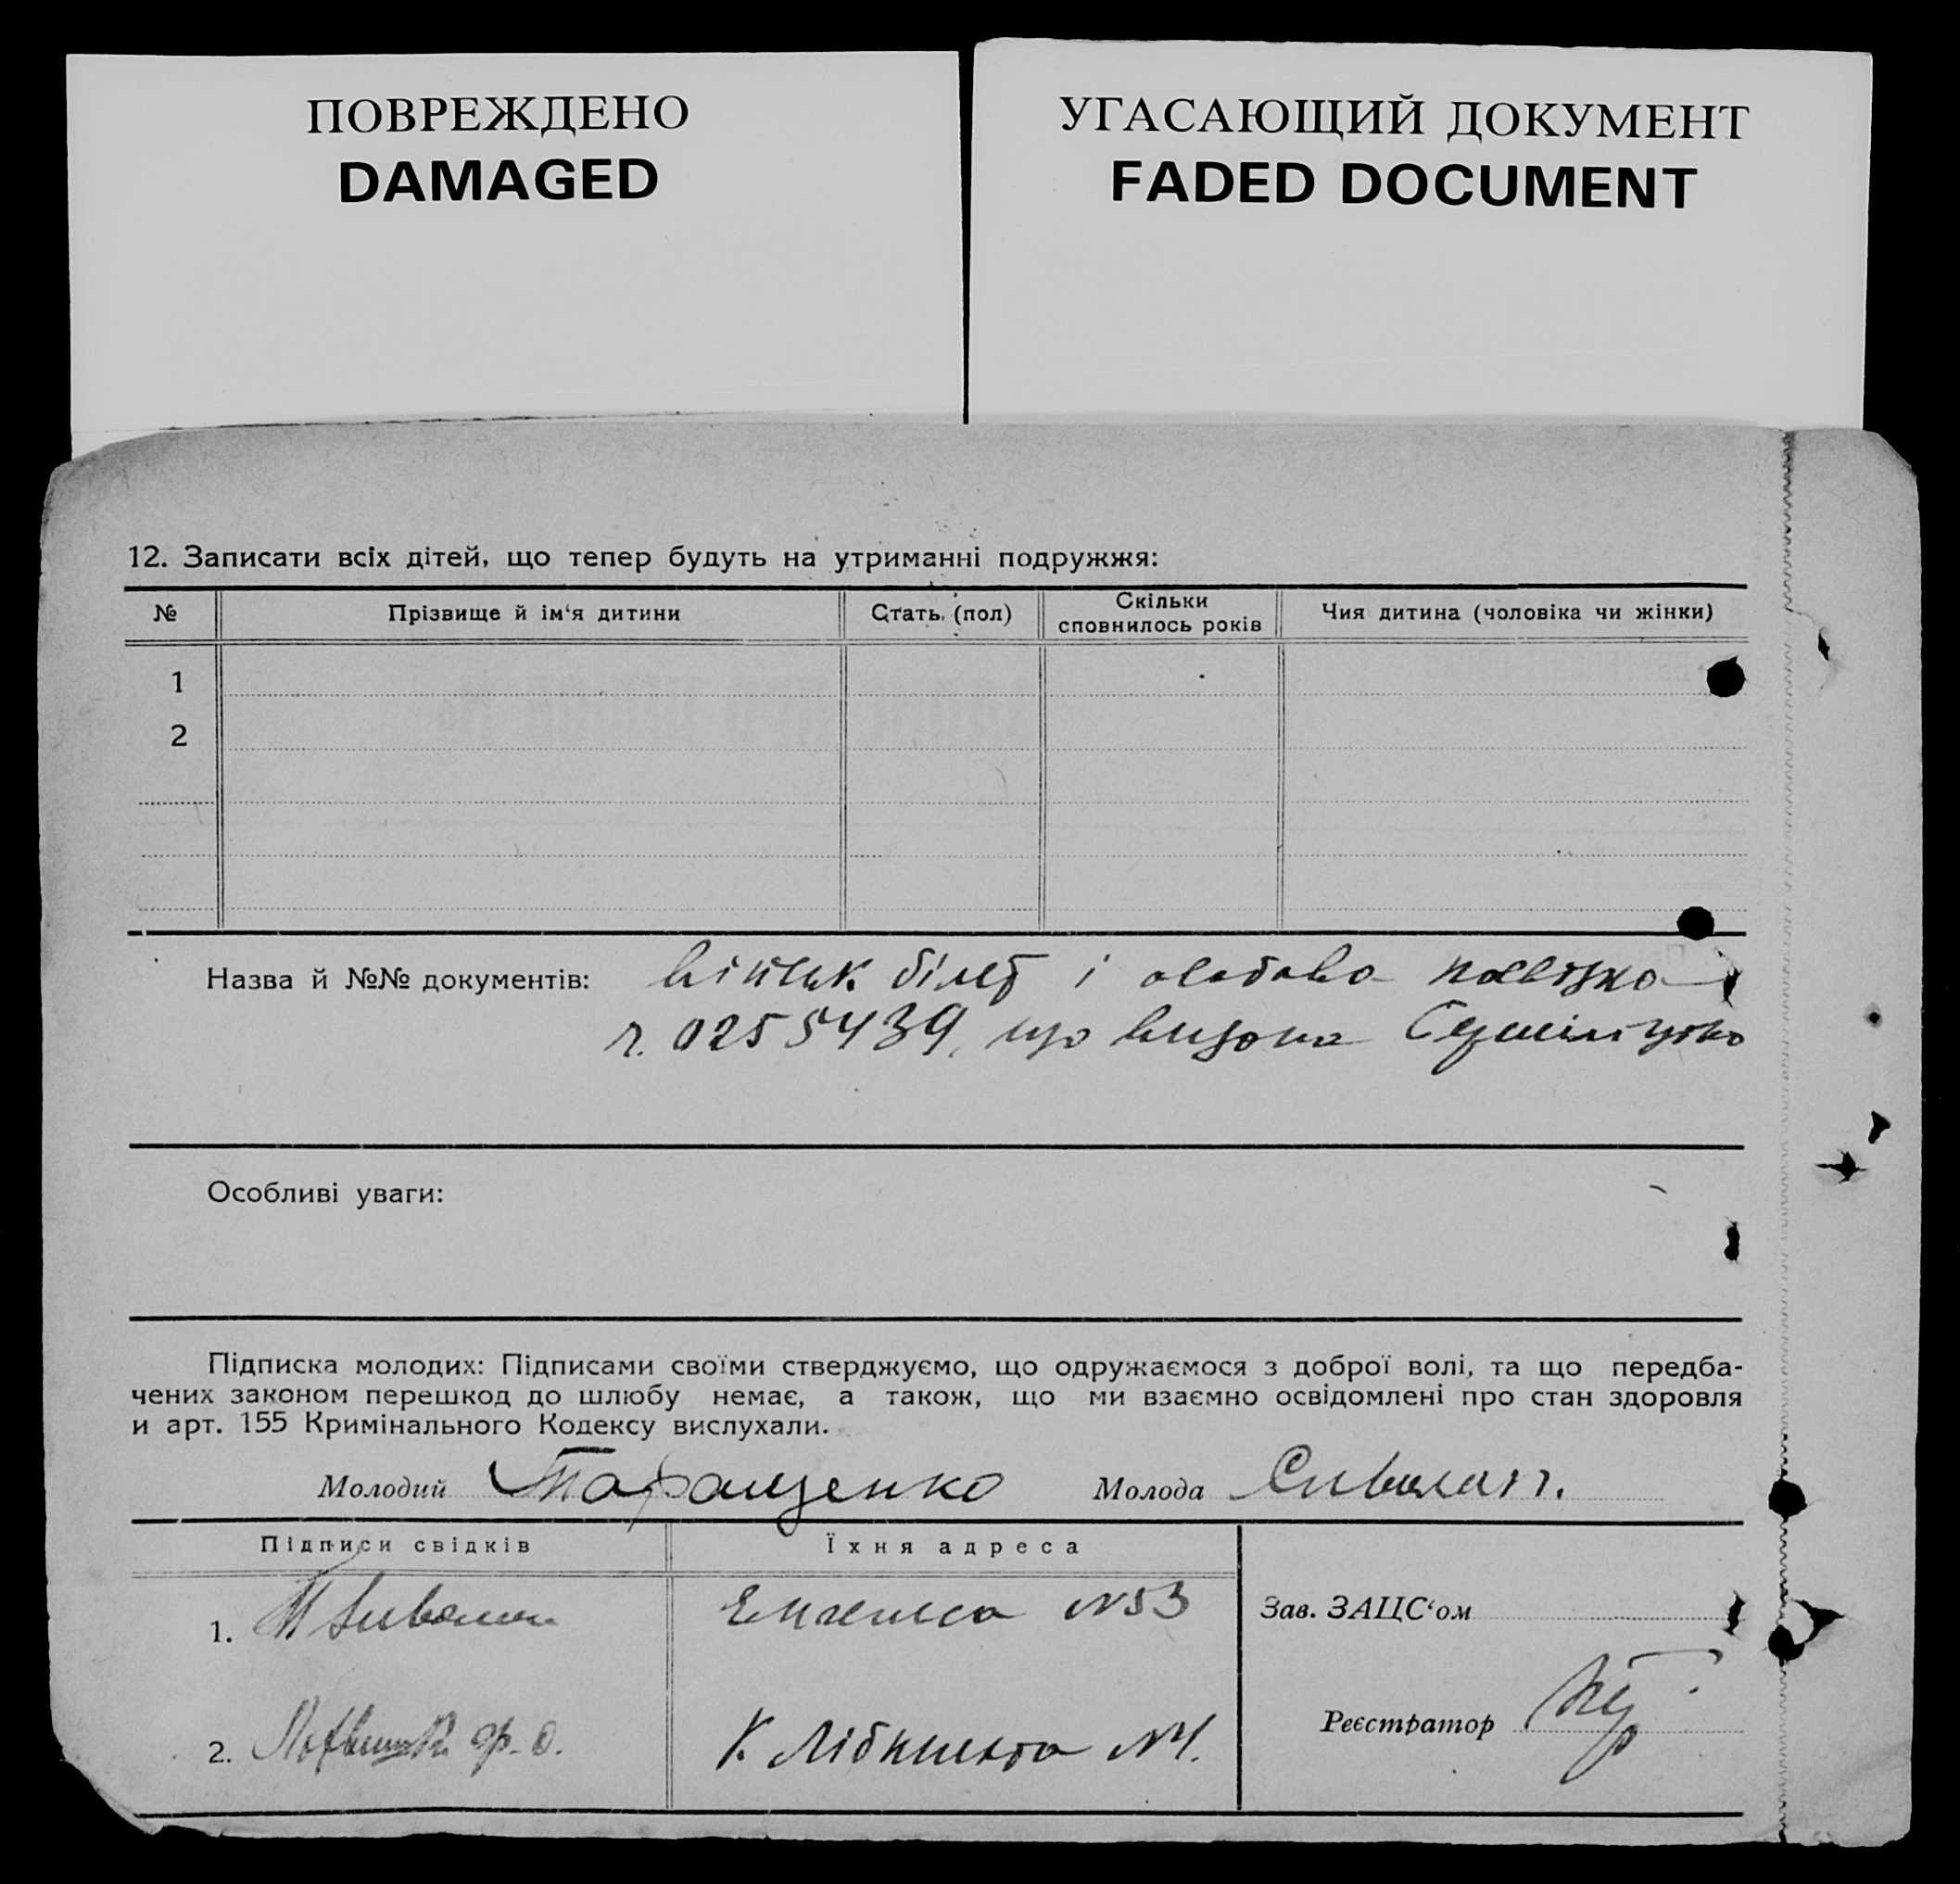 ПОВРЕЖДЕНО
DAMAGED
УГАСАЮЩИЙ ДОКУМЕНТ
FADED DOCUMENT
12. Записати всіх дітей, що тепер будуть на утриманні подружжя:
№ Прізвище й ім‘я дитини Стать (пол) Скільки сповнилось років Чия дитина (чоловіка чи жінки)
1
2
Назва й №№ документів: військ. білет і особова посвідка
0255439, що видана
Особливі уваги:
Підписка молодих: Підписами своїми стверджуємо, що одружаємося з доброї волі, та що передба-
чених законом перешкод до шлюбу немає, а також, що ми взаємно освідомлені про стан здоровля
и арт. 155 Кримінального Кодексу вислухали.
Молодий Таращенко Молода
Підписи свідків Їхня адреса
1. Енгельса №53 Зав. ЗАЦС‘ом
Реєстратор
2. К. Лібкнехта